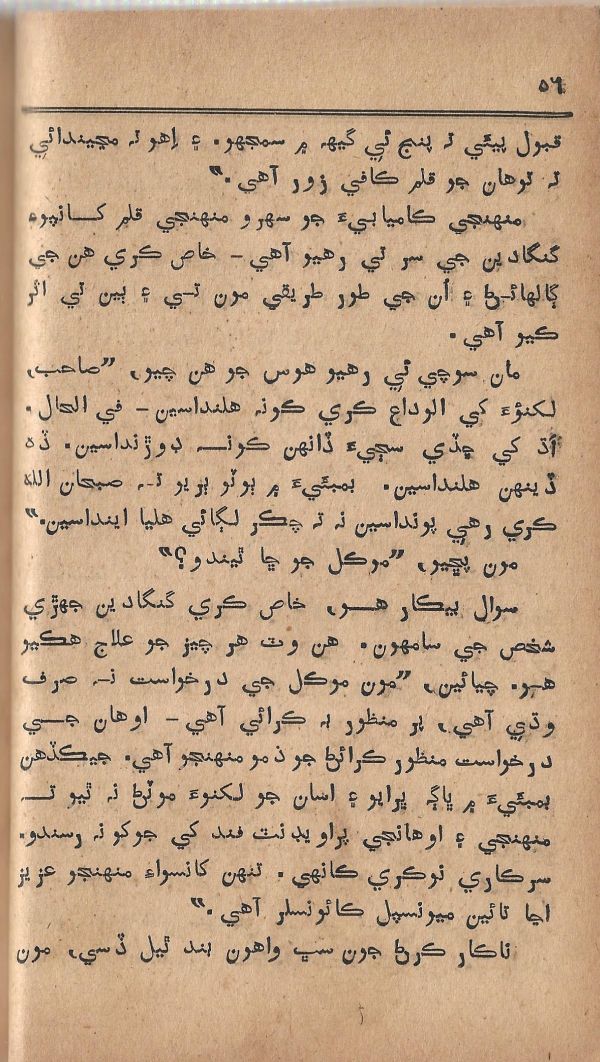 ٥٦
قبول پيئي تہ پنج ئي گيهہ ۾ سمجهو. ۽ اِهو تہ مڃيندائي
تہ توهان جو قلم ڪافي زور آهي.“
منهنجي ڪاميابيءَ جو سهرو منهنجي قلم کانپوءِ
گنگادين جي سر تي رهيو آهي – خاص ڪري هن جي
ڳالهائڻ ۽ اُن جي طور طريقي مون تي ۽ ٻين تي اثر
ڪيو آهي.
مان سوچي ئي رهيو هوس جو هن چيو، ”صاحب،
لکنؤءَ کي الوداع ڪري ڪونہ هلنداسين – في الحال.
اَڌ کي ڇڏي سڄيءَ ڏانهن ڪونہ ڊوڙنداسين. ڏھ
ڏينهن هلنداسين. بمبئيءَ ۾ ٻوٽو ٻريو تہ صبحان اللہ
ڪري رهي پونداسين نہ تہ چڪر لڳائي هليا اينداسين.“
مون پڇيو، ”موڪل جو ڇا ٿيندو؟“
سوال بيڪار هو، خاص ڪري گنگادين جهڙي
شخص جي سامهون. هن وٽ هر چيز جو علاج هڪيو
هو. چيائين، ”مون موڪل جي درخواست نہ صرف
وڌي آهي، پر منظور بہ ڪرائي آهي – اوهان جي
درخواست منظور ڪرائڻ جو ذمو منهنجو آهي. جيڪڏهن
بمبئيءَ ۾ ڀاڳ ڀرايو ۽ اسان جو لکنوءَ موٽڻ نہ ٿيو تہ
منهنجي ۽ اوهانجي پراويڊنٽ فند کي جوکو نہ رسندو.
سرڪاري نوڪري ڪانهي. تنهن کانسواءِ منهنجو عزيز
اڃا تائين ميونسپل ڪائونسلر آهي.“
ناڪار ڪرڻ جون سڀ واهون بند ٿيل ڏسي، مون